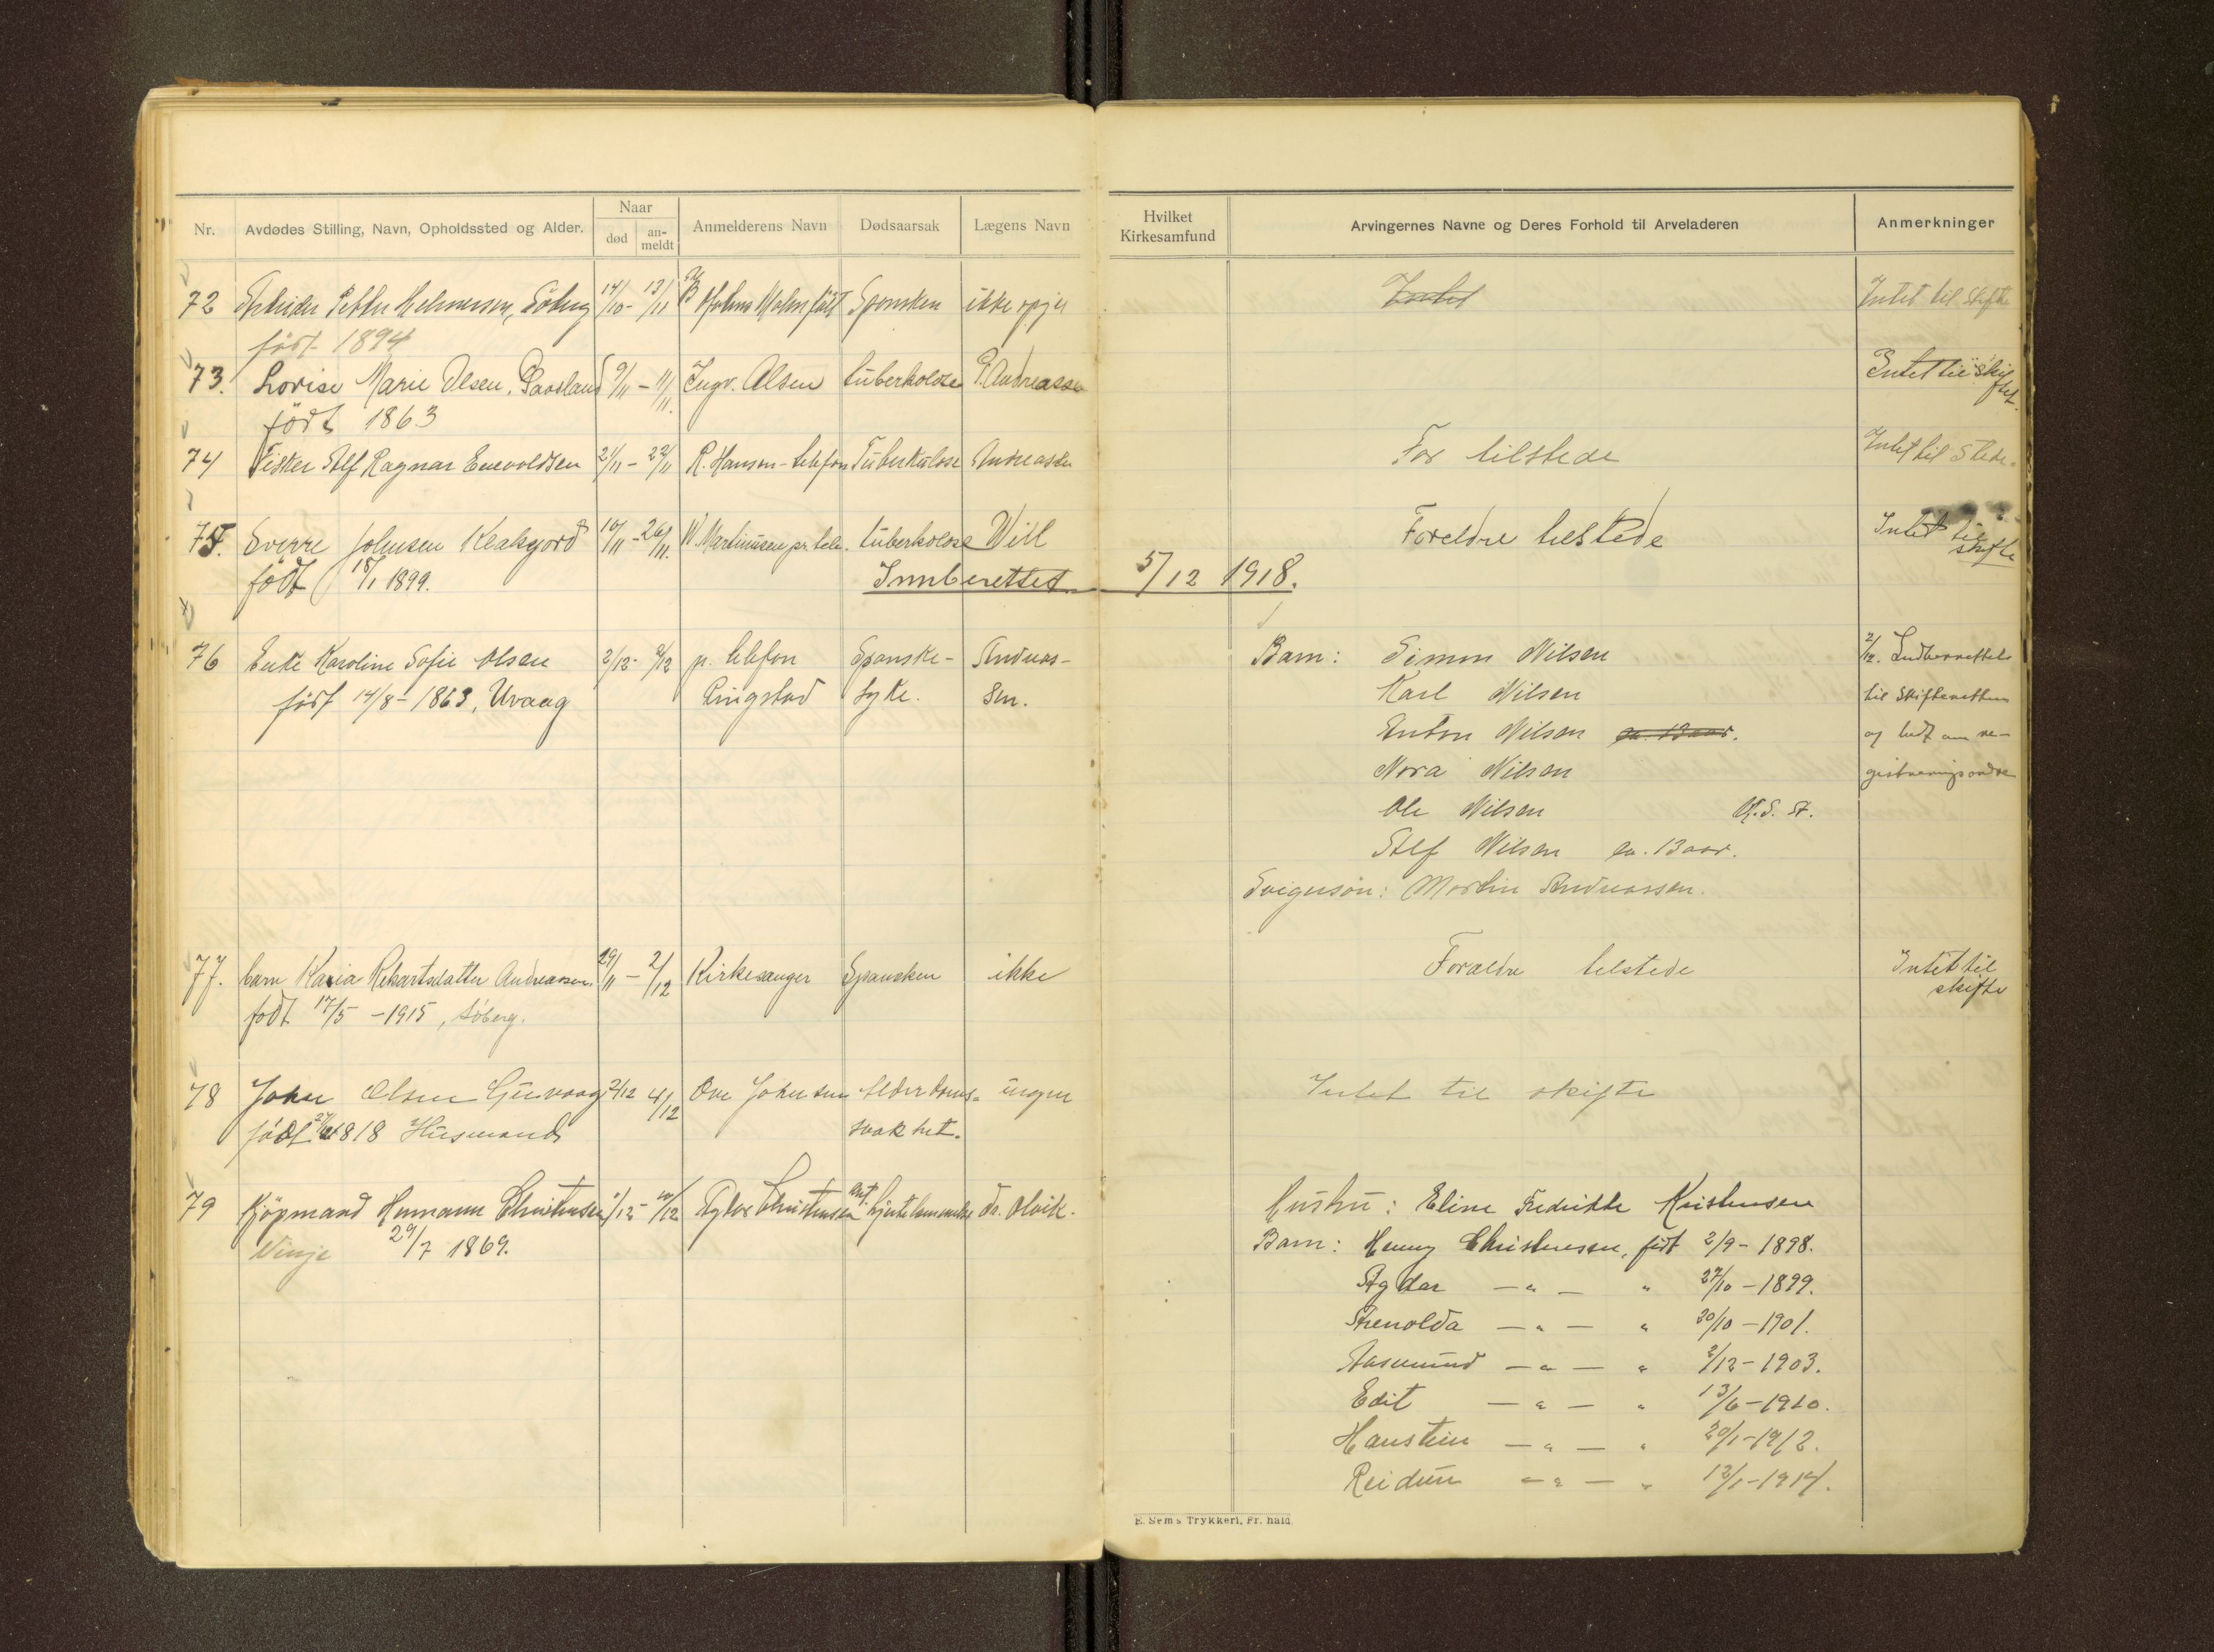 Nr.
Avdødes Stilling, Navn, Opholdssted og Alder.
Naar
død
an-
meldt
Anmelderens Navn
Dødsaarsak
Lægens Navn
Hvilket
Kirkesamfund
Arvingernes Navne og Deres Forhold til Arveladeren
Anmerkninger
72 Arbeider Petter Helmersen, 14/10 - 13/11 Spansken ikke Intet til Skifte
født 1894
73. Lovise Marie Olsen, 9/11 - 11/11. Ingv. Olsen tuberkolose P. Andreassen Intet til skif
født 1863 tet.
74 Fisker Alf Ragnar Enevoldsen 21/11 - 22/11 R. Hansen - telefon Tuberkulose Andreassen Far tilstede Intet til Stede
75. Sverre Johnsen 10/11 - 26/11. W. Martinusen pr. tele. tuberkolose Will Foreldre tilstede Intet til
skifte
født 18/1 1899.
Innberettet 5/12 1918.
76 Enke Karoline Sofie Olsen 2/12 - 2/12 p. telefon Spanske- Andreas- Barn: Simon Nilsen 2/12. Indberettet
født 14/8 - 1863, Uvaag Ringstad syke. sen. Karl Nilsen til Skifteretten
Anton Nilsen ca. 13 aar. og bedt om re-
Nora Nilsen gistreringsordre
Ole Nilsen
Alf Nilsen ca. 13 aar.
Svigersøn: Martin Andreassen.
77. barn Andreassen 29/11 - 2/12 Kirkesanger Spansken ikke Foraldre tilstede Intet til
skifte
født 17/5 - 1915, Søberg.
78 Johan Olsen 2/12 4/12 Ove Johansen Alderdoms- ingen Intet til skifte
født 1818 Husmand svakhet.
79 Kjøpmand Hemann Christensen /12 - 10/12 Christensen ant. hjertelammelse Dr. Olvik. Hustru: Eline Fredrikke Kristensen
Vinje 29/7 1869. Barn: Henny Christensen, født 2/9 - 1898.
Agdar — " — " 27/10 - 1899.
Arnolda — " — " 30/10 - 1901.
Aasmund — " — " 2/12 - 1903.
Edit — " — " 13/6 - 1910.
Haustein — " — " 20/1 - 1912.
Reidun — " — " 13/1 - 1914.
E. Sem's Trykkeri, Fr. hald.